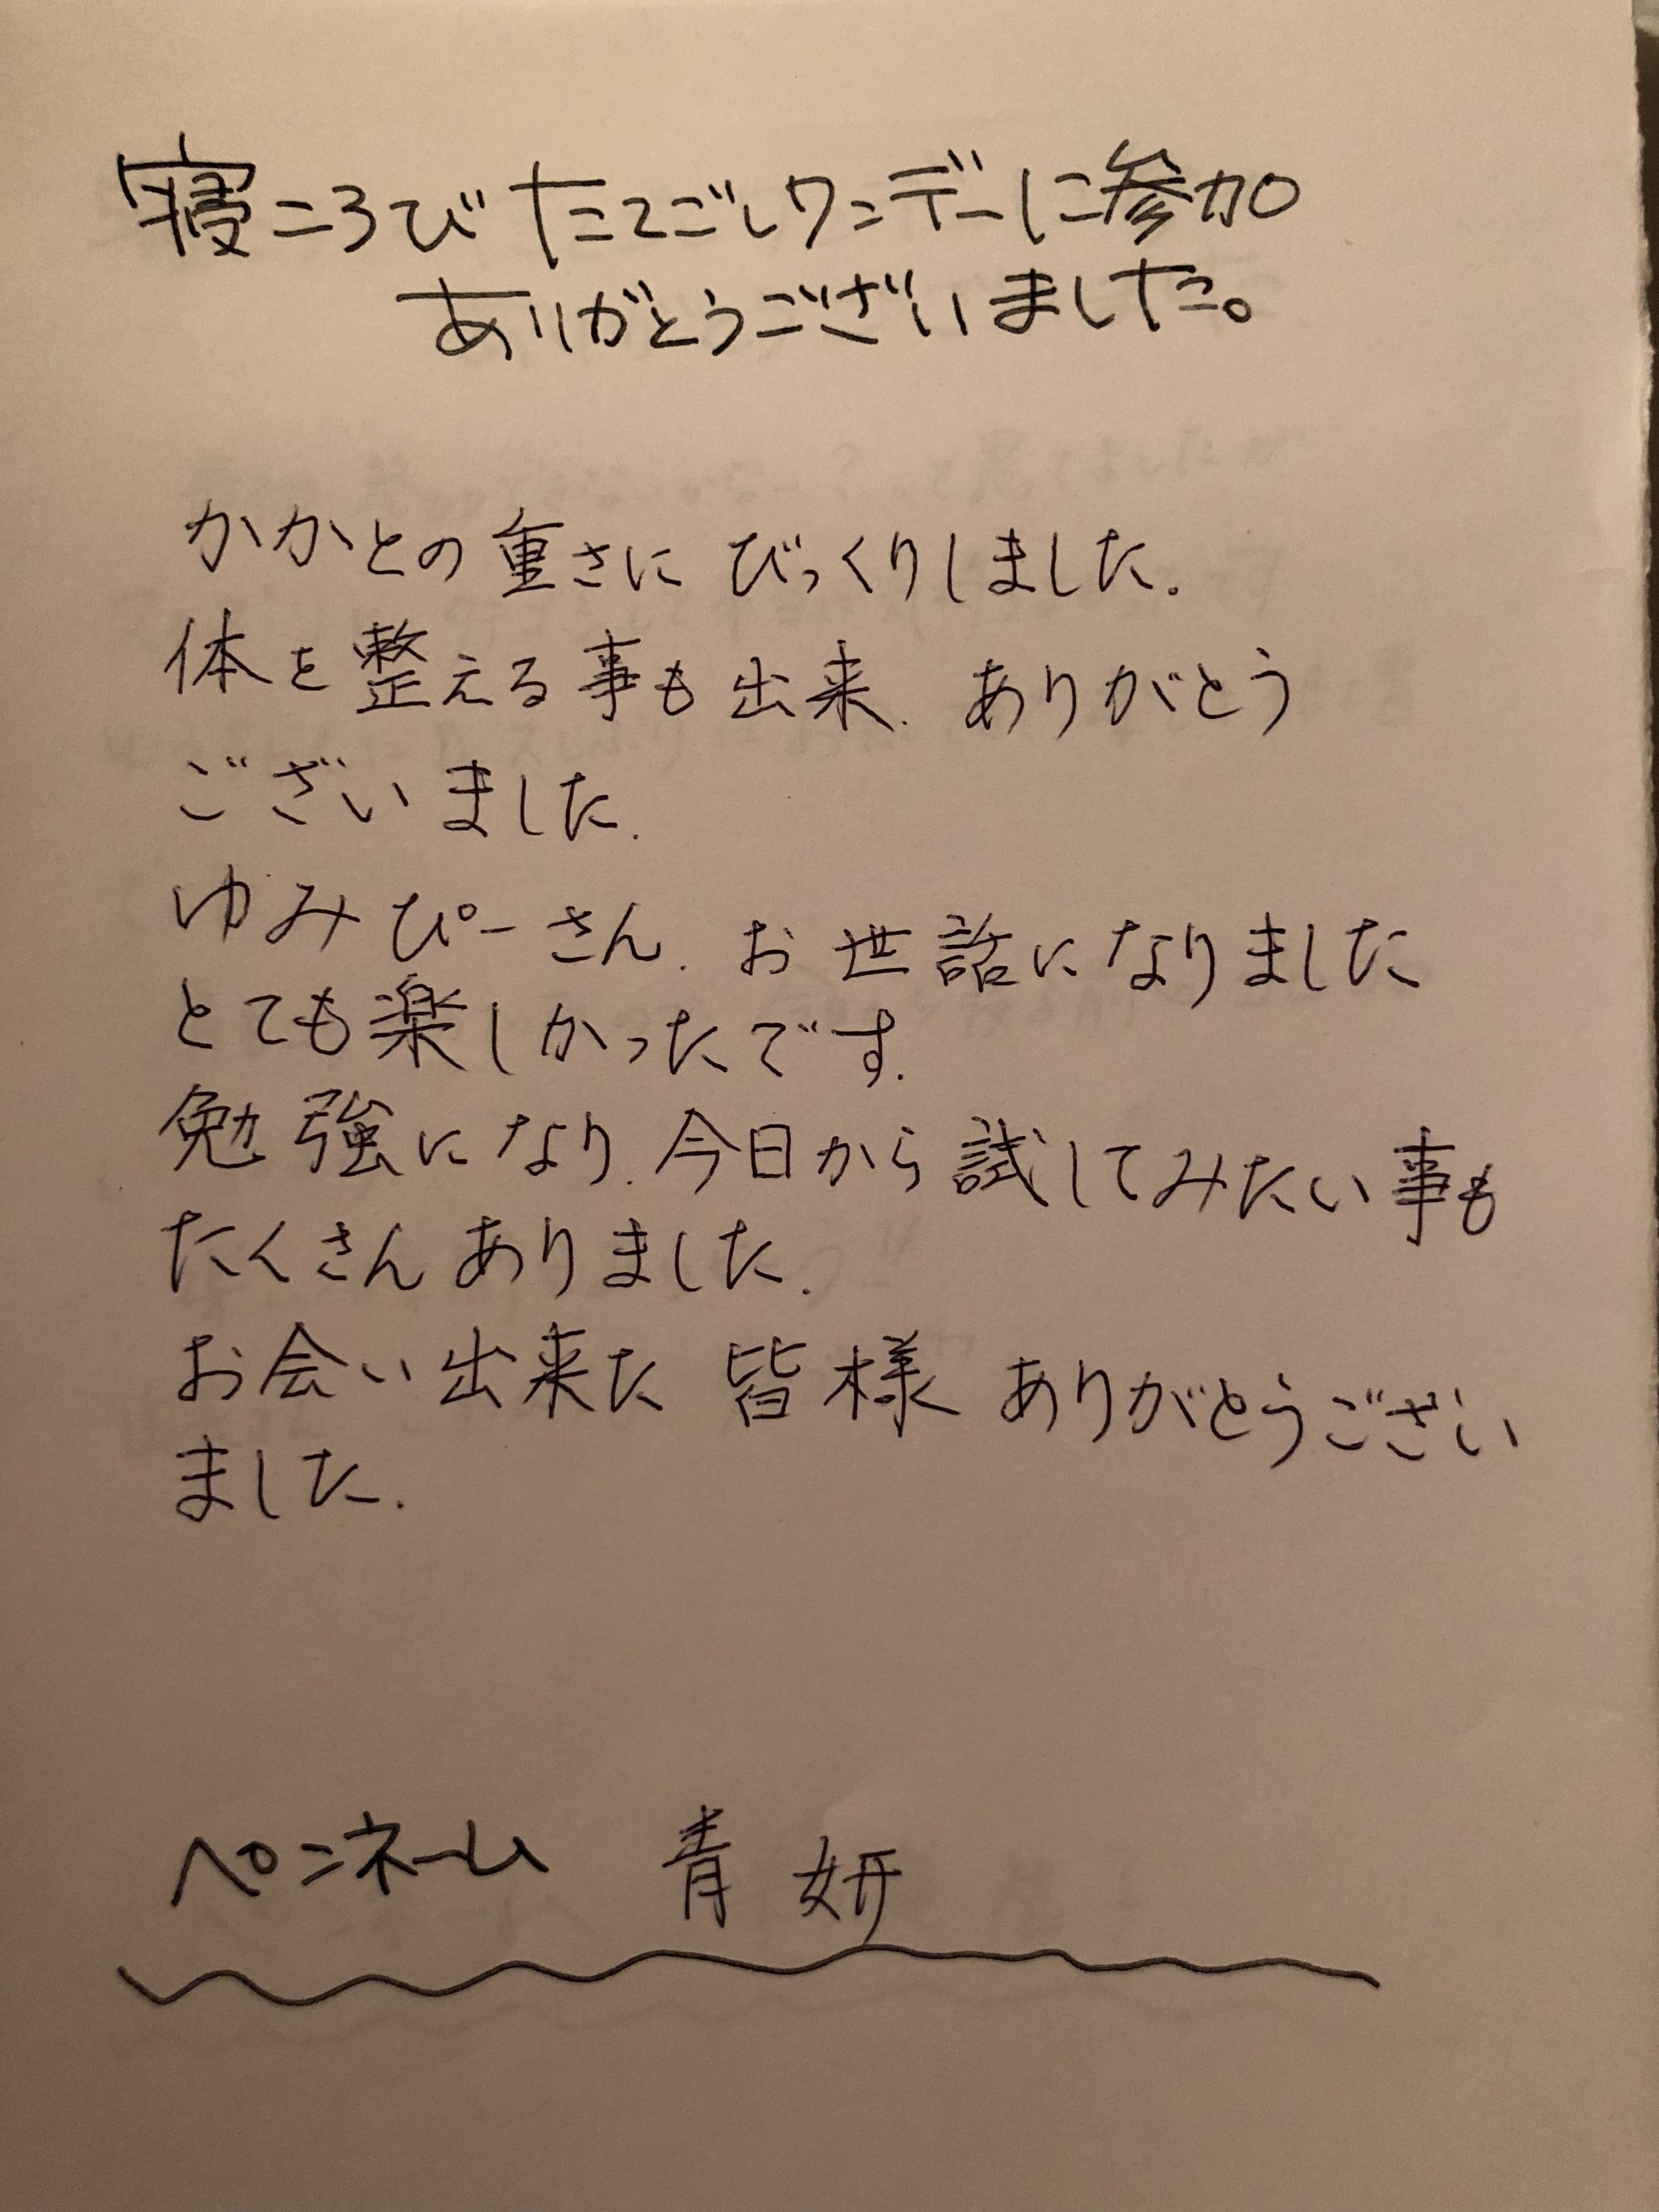 寝ころびたてごしワンデーに参加
ありがとうございました。
かかとの重さに びっくりしました.
体を整える事も出来. ありがとう
ございました.
ゆみぴーさん. お世話になりました
とても楽しかったです.
勉強になり. 今日から試してみたい事も
たくさん ありました.
お会い出来た 皆様 ありがとうござい
ました.
ペンネーム 青妍